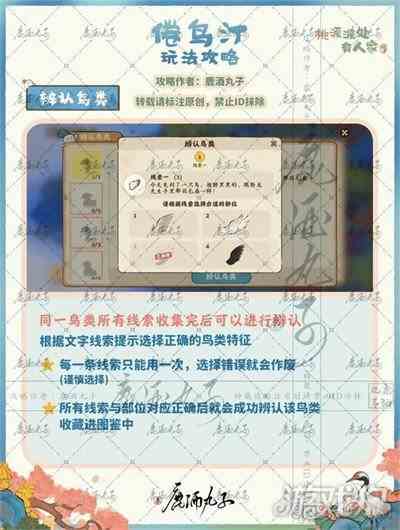 倦鸟汀
玩法攻略
桃源深处
有人家
攻略作者：鹿酒丸子
转载请标注原创，禁止ID抹除
辨认鸟类
辨认鸟类
辨认鸟类
线索一
请根据线索选择合适的部位
1
2
3
4
辨认鸟类
同一鸟类所有线索收集完后可以进行辨认
根据文字线索提示选择正确的鸟类特征
每一条线索只能用一次，选择错误就会作废
(谨慎选择)
所有线索与部位对应正确后就会成功辨认该鸟类
收藏进图鉴中
鹿酒丸子